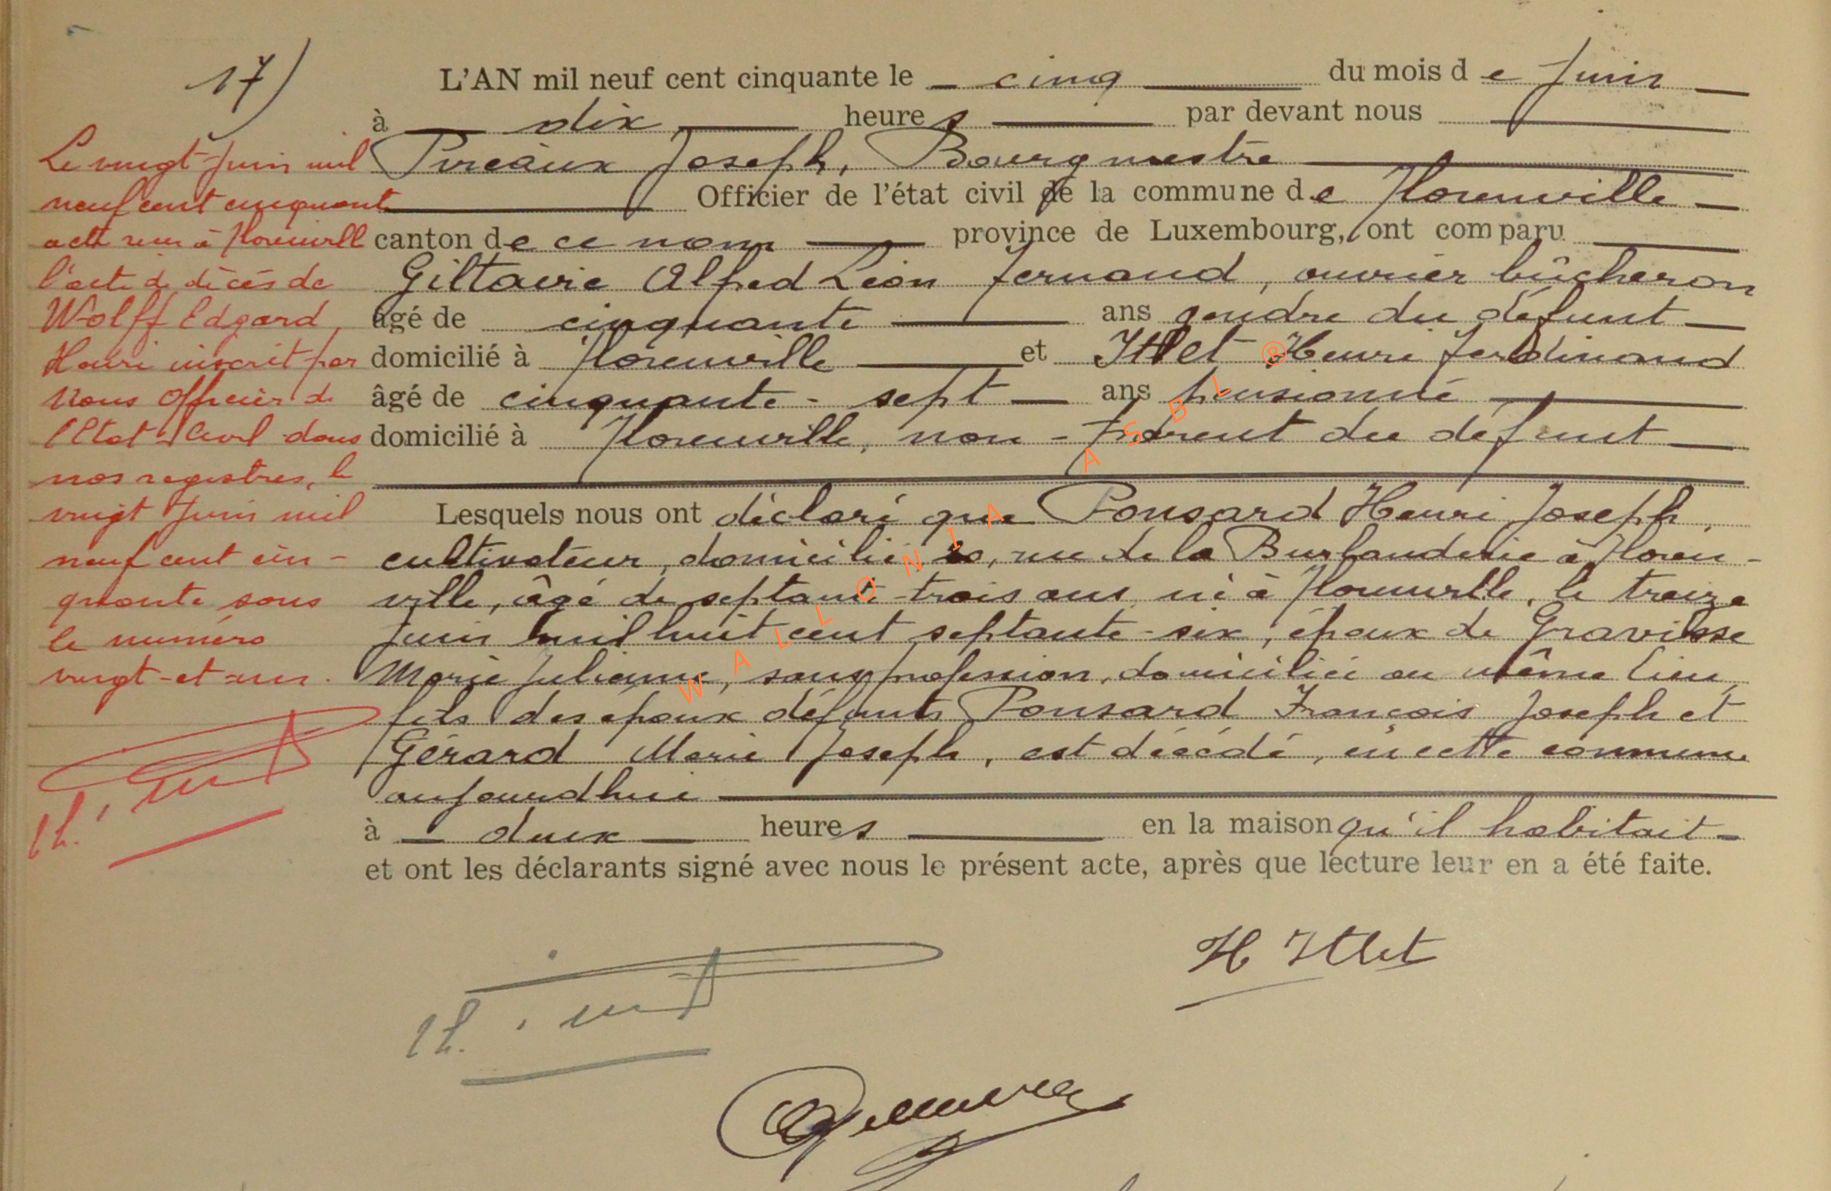 17)
L'AN mil neuf cent cinquante le cinq du mois de Juin
à dix heures par devant nous
Pireaux Joseph, Bourgmestre
Officier de l'état civil de la commune de Florenville
canton de ce nom province de Luxembourg, ont comparu
Giltaire Alfred Léon Fernand, ouvrier bûcheron
âgé de cinquante ans gendre du défunt
domicilié à Florenville et Ittlet Henri Ferdinand
âgé de cinquante-sept ans pensionné
domicilié à Florenville, non-parent du défunt
Lesquels nous ont déclaré que Ponsard Henri Joseph,
cultivateur, domicilié rue de la à Floren-
ville, âgé de septante-trois ans, né à Florenville, le treize
Juin mil huit cent septante-six, époux de Gravisse
Marie Julienne, sans profession, domiciliée au même lieu,
fils des époux défunts Ponsard François Joseph et
Gérard Marie Joseph, est décédé, en cette commune
aujourd'hui
à deux heures en la maison qu'il habitait
et ont les déclarants signé avec nous le présent acte, après que lecture leur en a été faite.
Le vingt Juin mil
neuf cent cinquante
acte à Florenville
l'acte de décès de
Wolff Edgard,
Henri inscrit par
Nous Officier de
l'Etat-Civil dans
nos registres, le
vingt Juin mil
neuf cent cin-
quante sous
le numéro
vingt-et-un.
H Ittlet
WALLONIA ASBL ®